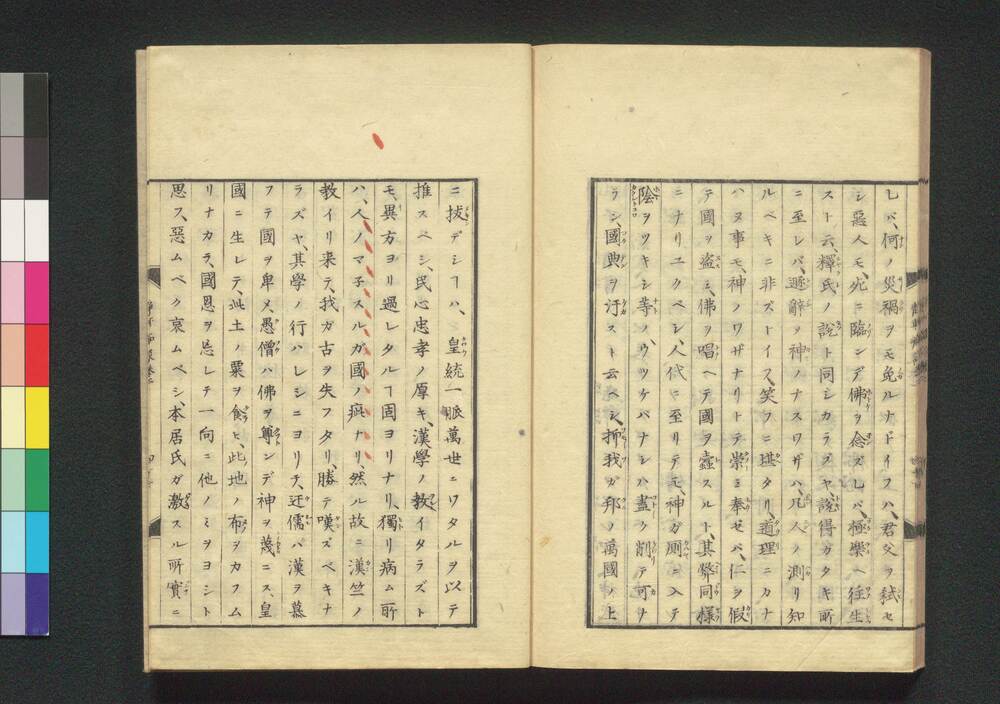 レバ、何ノ災禍ヲモ免ルナドイフハ、君父ヲ弑セ
シ惡人モ、死ニ臨ンデ佛ヲ念ズレバ、極樂ヘ往生
スト云、釋氏ノ說ト同シカラズヤ、說得ガタキ所
ニ至レバ、遁辭ヲ神ノナスワザハ、凡人ノ測リ知
ルベキニ非ズトイフ、笑フニ堪タリ、道理ニカナ
ハヌ事モ、神ノワザナリトテ崇ミ奉ゼバ、仁ヲ假
テ國ヲ盜ミ、佛ヲ唱ヘテ國ヲ蠧スルト、其弊同樣
ニナリユクベシ、人代ニ至リテモ、神ガ厠ニ入テ
陰ヲツキシ等ノ、ウツケバナシハ、盡ク削リテ可ナ
ラン、國典ヲ汙スト云ベシ、抑我ガ邦ノ萬國ノ上
ニ拔デシヿハ、皇統一脈萬世ニワタルヲ以テ
推スベシ、民心忠孝ノ厚キ、漢學ノ教イタラズト
モ、異方ヨリ過レタルヿ固ヨリナリ、獨リ病ム所
ハ、人ノマ子スルガ國ノ疵ナリ、然ル故ニ漢竺ノ
教イリ来テ、我ガ古ヲ失フタリ、勝テ嘆ズベキナ
ラズヤ、其學ノ行ハレシニヨリテ、迂儒ハ漢ヲ慕
フテ國ヲ卑メ、愚僧ハ佛ヲ尊ンデ神ヲ蔑ニス、皇
國ニ生レテ、此土ノ粟ヲ食ヒ、此地ノ布ヲカフム
リナカラ、國恩ヲ忘レテ一向ニ他ノミヲヨシト
思フ、惡ムベク哀ムベシ、本居氏ガ激スル所實ニ